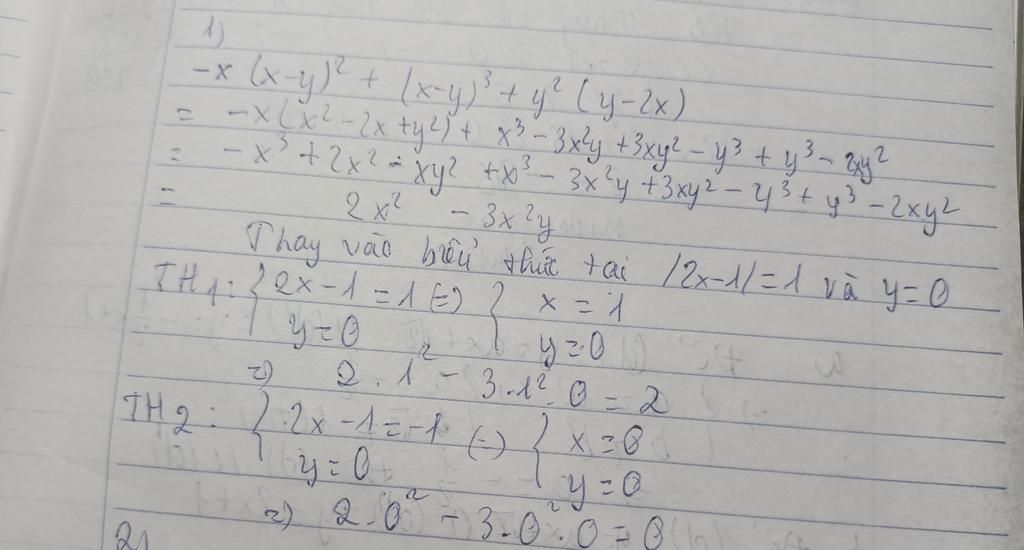 1)
-x (x-y)² + (x-y)³ + y² (y-2x)
= -x(x² - 2x + y²) + x³ - 3x²y + 3xy² - y³ + y³ - 2xy²
= -x³ + 2x² - xy² + x³ - 3x²y + 3xy² - y³ + y³ - 2xy²
= 2x² - 3x²y
Thay vào biểu thức tại |2x-1| = 1 và y = 0
TH1: { 2x - 1 = 1 (=) { x = 1
y = 0 y = 0
=) 2 . 1² - 3.1² . 0 = 2
TH2: { 2x - 1 = -1 (=) { x = 0
y = 0 y = 0
=) 2 . 0² - 3 . 0² . 0 = 0
2)